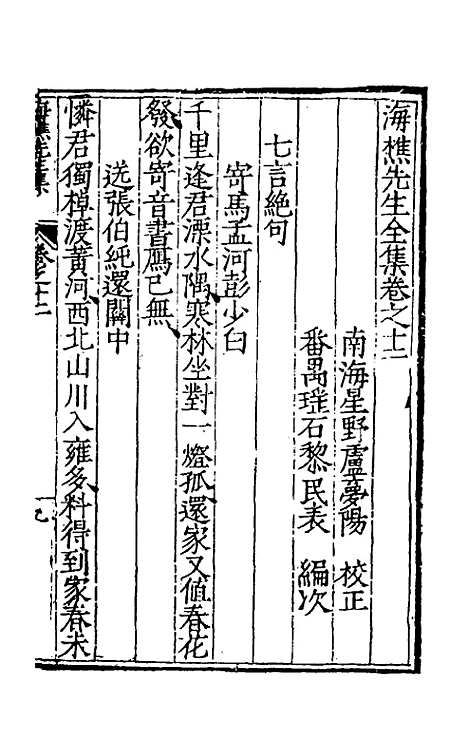 海樵先生全集卷之十二
南海星野盧夢陽　校正
番禺瑤石黎民表　編次
七言絕句
寄馬孟河彭少白
千里逢君溧水隅寒林坐對一燈孤還家又值春花
發欲寄音書鴈已無
送張伯純還關中
憐君獨棹渡黃河西北山川入雍多料得到家春未